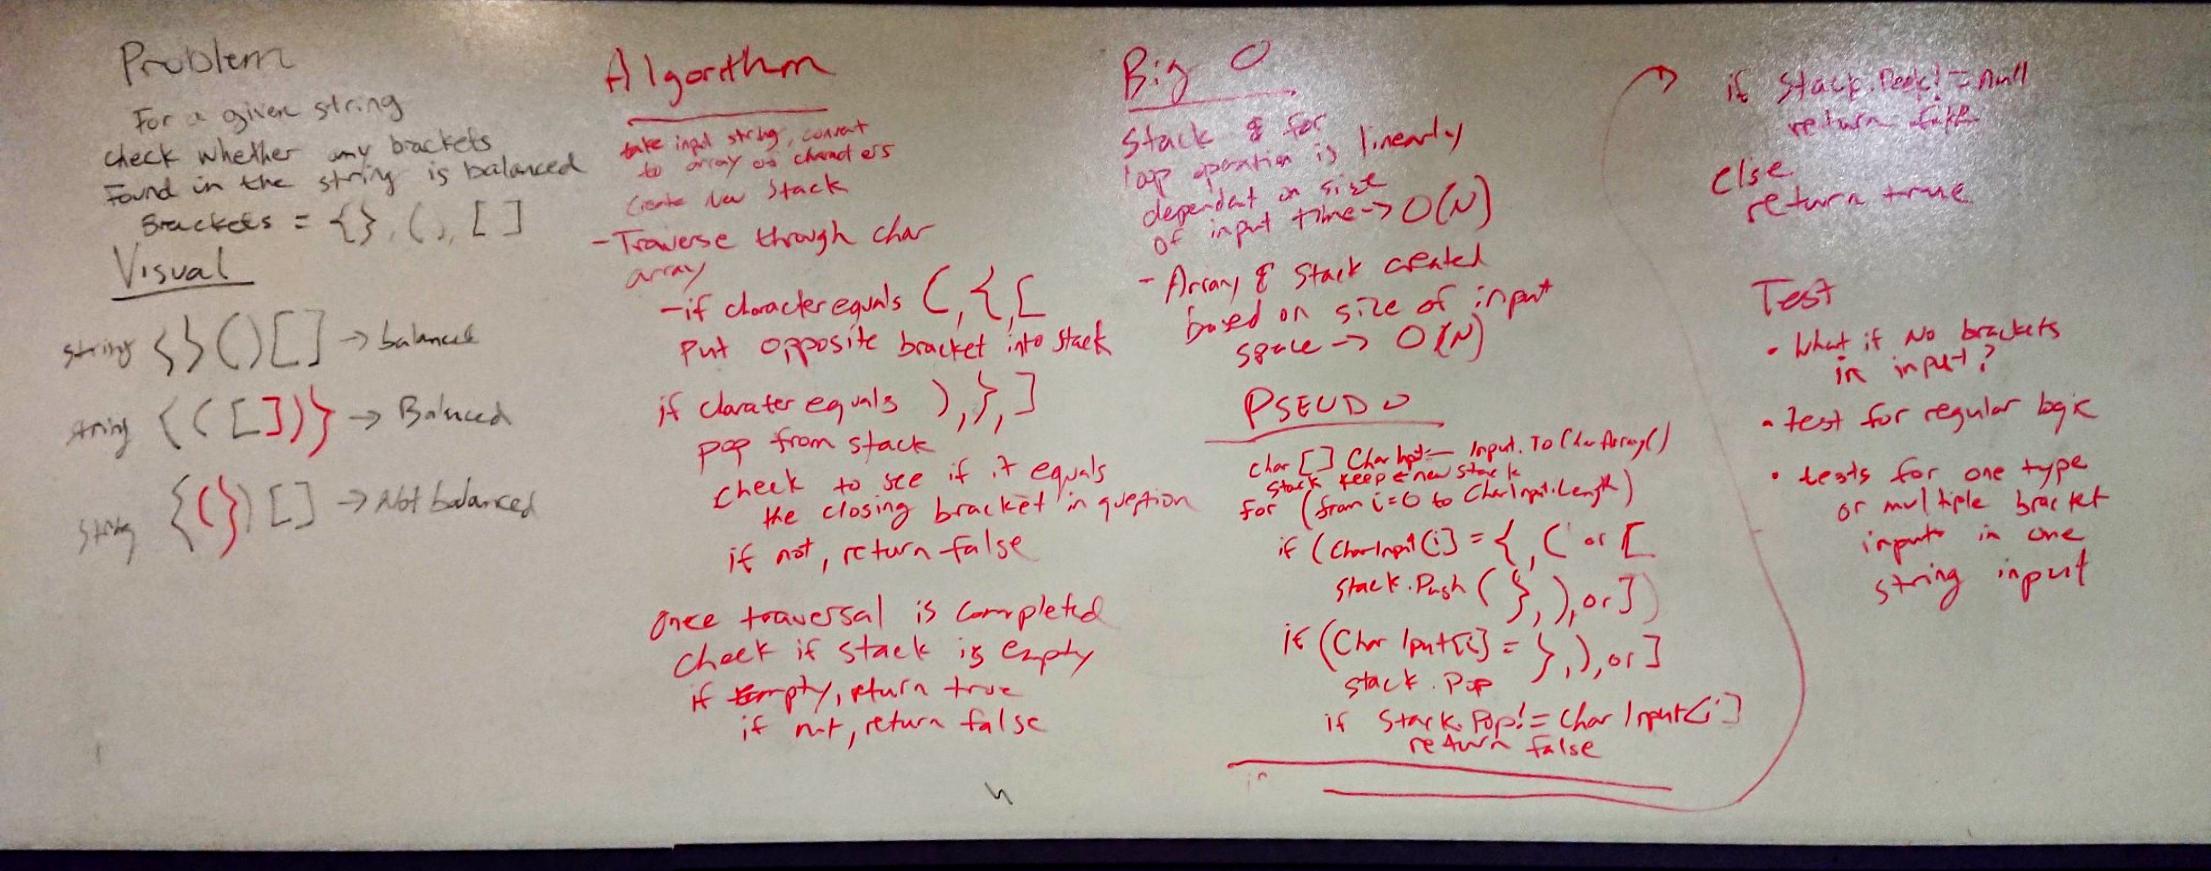 Problem
For a given string
check whether any brackets
Found in the string is balanced
Brackets = {}, (), []
Visual
string {}()[] -> balanced
string {([])} -> Balanced
string {(})[] -> Not balanced
Algorithm
take input string, convert
to array of characters
Create New Stack
- Traverse through char
array
- if character equals (, {, [
put opposite bracket into stack
if clarater equals ), }, ]
pop from stack
check to see if it equals
the closing bracket in question
if not, return false
Once traversal is completed
check if stack is empty
if empty, return true
if not, return false
Big O
Stack & for
loop operation is linearly
dependent on size
of input time -> O(N)
- Array & Stack created
based on size of input
space -> O(N)
PSEUDO
char [] Char = Input.ToCharArray()
Stack keep = new stack
for (from i=0 to CharInput.Length)
if (CharInput[i] = {, ( or [
stack.Push (}, ), or ])
if (Char Iput[i] = }, ), or ]
stack.Pop
if Stack.Pop != Char Input[i]
return false
if Stack.Peek != null
return false
else
return true
Test
• What if No brackets
in input?
• test for regular logic
• tests for one type
or multiple bracket
inputs in one
string input